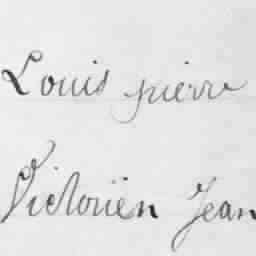 Louis pierre
Victorien Jean